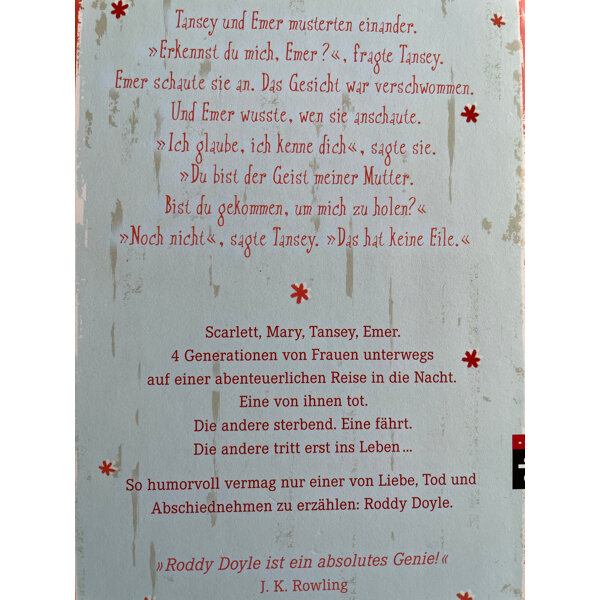 Tansey und Emer musterten einander.
»Erkennst du mich, Emer?«, fragte Tansey.
Emer schaute sie an. Das Gesicht war verschwommen.
Und Emer wusste, wen sie anschaute.
»Ich glaube, ich kenne dich«, sagte sie.
»Du bist der Geist meiner Mutter.
Bist du gekommen, um mich zu holen?«
»Noch nicht«, sagte Tansey. »Das hat keine Eile.«
Scarlett, Mary, Tansey, Emer.
4 Generationen von Frauen unterwegs
auf einer abenteuerlichen Reise in die Nacht.
Eine von ihnen tot.
Die andere sterbend. Eine fährt.
Die andere tritt erst ins Leben ...
So humorvoll vermag nur einer von Liebe, Tod und
Abschiednehmen zu erzählen: Roddy Doyle.
»Roddy Doyle ist ein absolutes Genie!«
J. K. Rowling